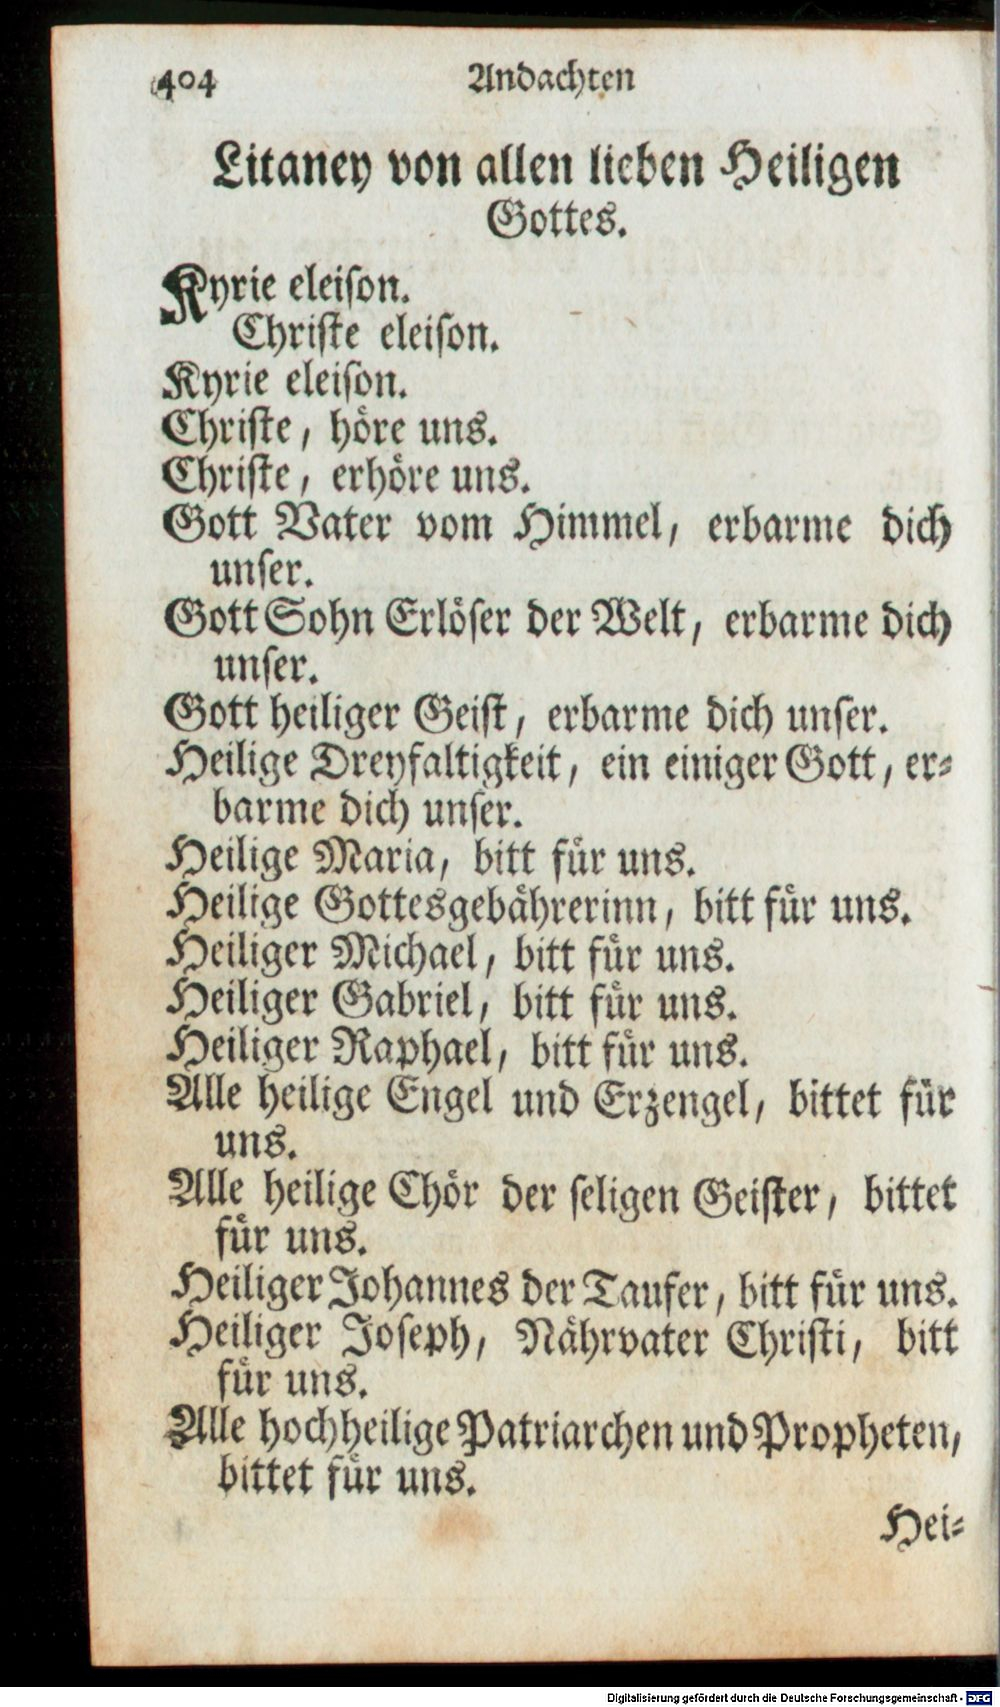 404 Andachten
Litaney von allen lieben Heiligen
Gottes.
Kyrie eleison.
Christe eleison.
Kyrie eleison.
Christe, höre uns.
Christe, erhöre uns.
Gott Vater vom Himmel, erbarme dich
unser.
Gott Sohn Erlöser der Welt, erbarme dich
unser.
Gott heiliger Geist, erbarme dich unser.
Heilige Dreyfaltigkeit, ein einiger Gott, er-
barme dich unser.
Heilige Maria, bitt für uns.
Heilige Gottesgebährerinn, bitt für uns.
Heiliger Michael, bitt für uns.
Heiliger Gabriel, bitt für uns.
Heiliger Raphael, bitt für uns.
Alle heilige Engel und Erzengel, bittet für
uns.
Alle heilige Chör der seligen Geister, bittet
für uns.
Heiliger Johannes der Taufer, bitt für uns.
Heiliger Joseph, Nährvater Christi, bitt
für uns.
Alle hochheilige Patriarchen und Propheten,
bittet für uns.
Hei-
Digitalisierung gefördert durch die Deutsche Forschungsgemeinschaft - DFG